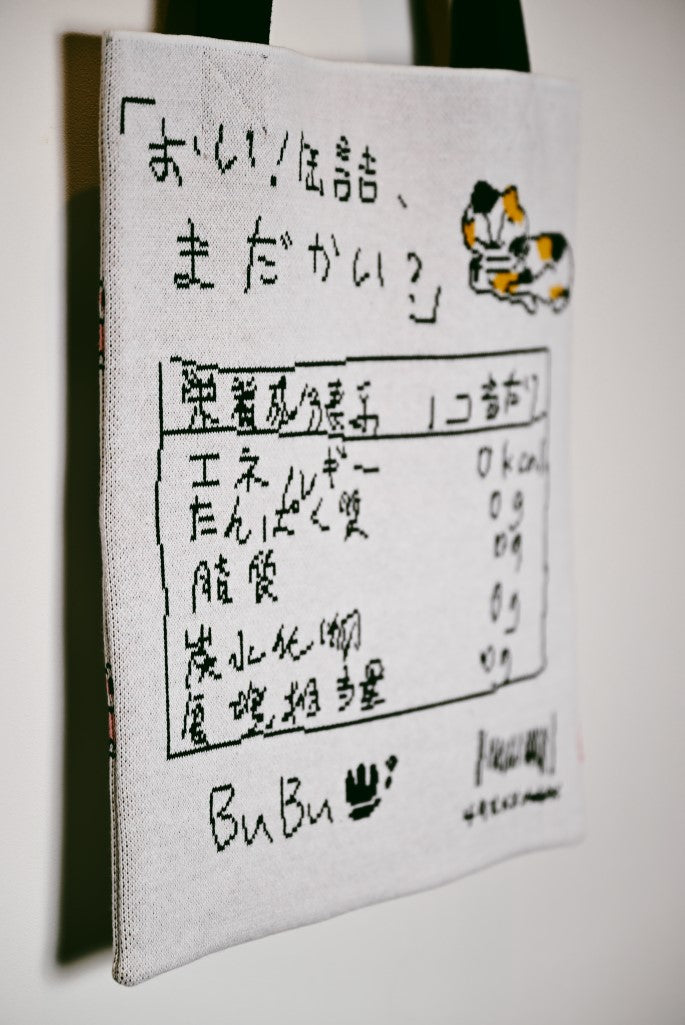 「おいしい!缶詰、
まだかい?」
栄養成分表示 1コ当たり
エネルギー 0kcal
たんぱく質 0g
脂質 0g
炭水化物 0g
食塩相当量 0g
BuBu